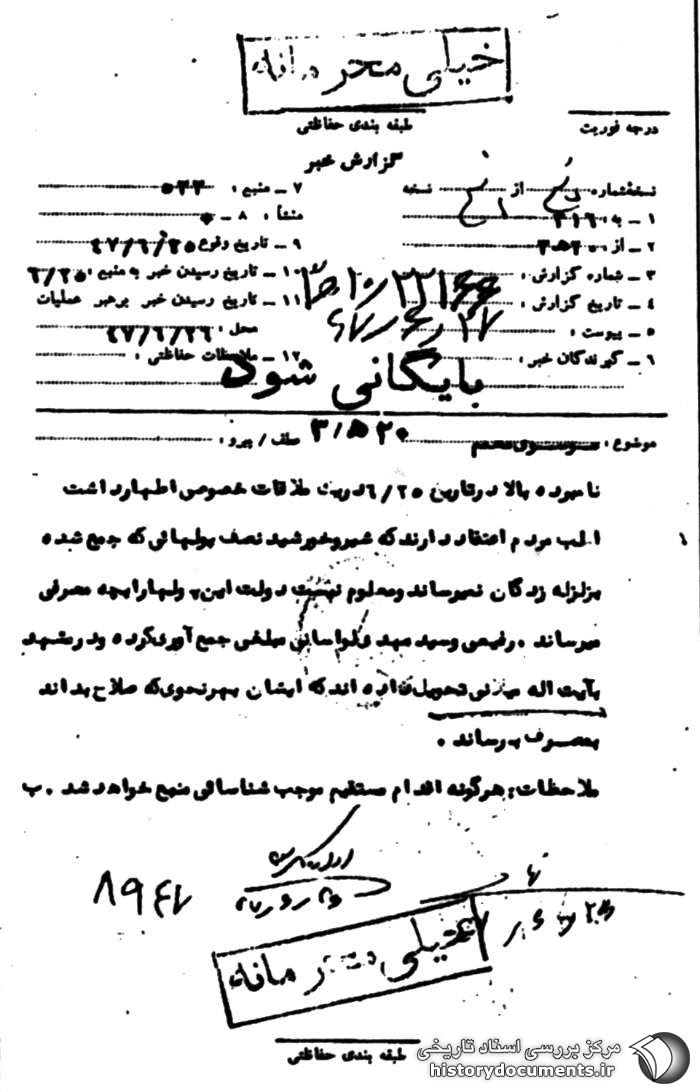 خیلی محرمانه
طبقه بندی حفاظتی
درجه فوریت
گزارش خبر
نسخه شماره از نسخه
۱ ـ به : ۳۱۶
۲ ـ از :
۳ ـ شماره گزارش :
۴ ـ تاریخ گزارش :
۵ ـ پیوست :
۶ ـ گیرندگان خبر :
۷ ـ منبع : ۵۳۳
۸ ـ منشأ :
۹ ـ تاریخ وقوع ۴۷/۶/۲۵
۱۰ ـ تاریخ رسیدن خبر به منبع : ۶/۲۵
۱۱ ـ تاریخ رسیدن خبر برهبر عملیات
محل : ۴۷/۶/۲۶
۱۲ ـ ملاحظات حفاظتی :
بایگانی شود
موضوع :
عطف / پیرو :
نامبرده بالا درتاریخ ۶/۲۵ دریک ملاقات خصوصی اظهارداشت
اغلب مردم اعتقاد دارند که شیروخورشید نصف پولهائی که جمع شده
بزلزله زدگان نمیرساند ومعلوم نیست دولت این پولهارابچه مصرفی
میرساند . رفیعی وسید مهدی مبلغی جمع آوری کرده ودرمشهد
بآیت اله میلانی تحویل داده اند که ایشان بهرنحوی که صلاح بداند
بمصرف برساند .
ملاحظات : هرگونه اقدام مستقیم موجب شناسائی منبع خواهد شد . ب
۸۹۴۷
خیلی محرمانه
طبقه بندی حفاظتی
مرکز بررسی اسناد تاریخی
historydocuments.ir